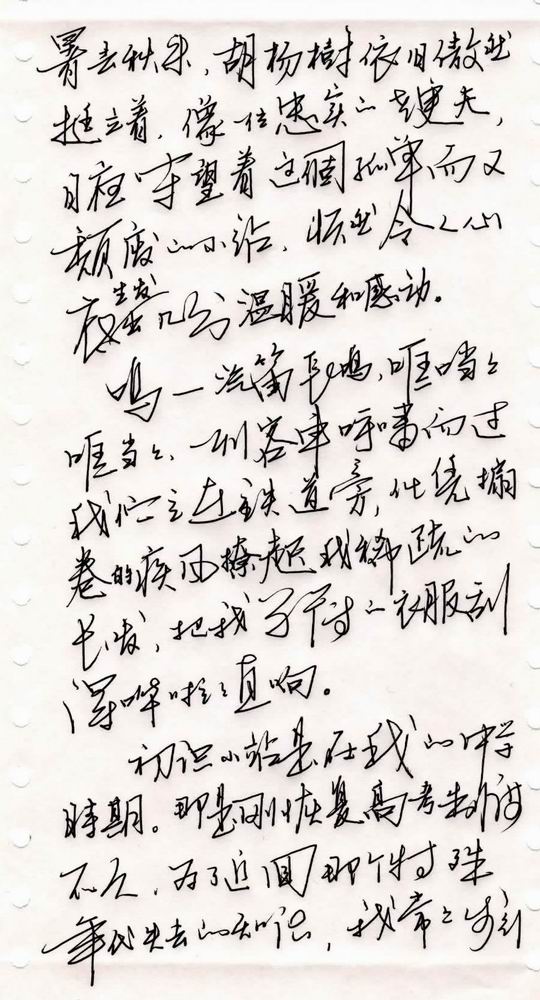 暑去秋来，胡杨樹依旧傲然
挺立着，像一位忠实的丈夫，
日夜守望着这個孤单而又
颓废的小站，顿然令人心
底生发几分温暖和感动。
鸣—汽笛长鸣，哐当々
哐当々，一列客車呼啸而过
我们立在鉄道旁，任凭塌
卷的疾风撩起我稀疏的
长发，把我单薄的衣服刮
得哗啦々直响。
初识小站是在我的中学
時期。那是刚恢复高考制度
不久，为了追回那个特殊
年代失去的知识，我常々步行